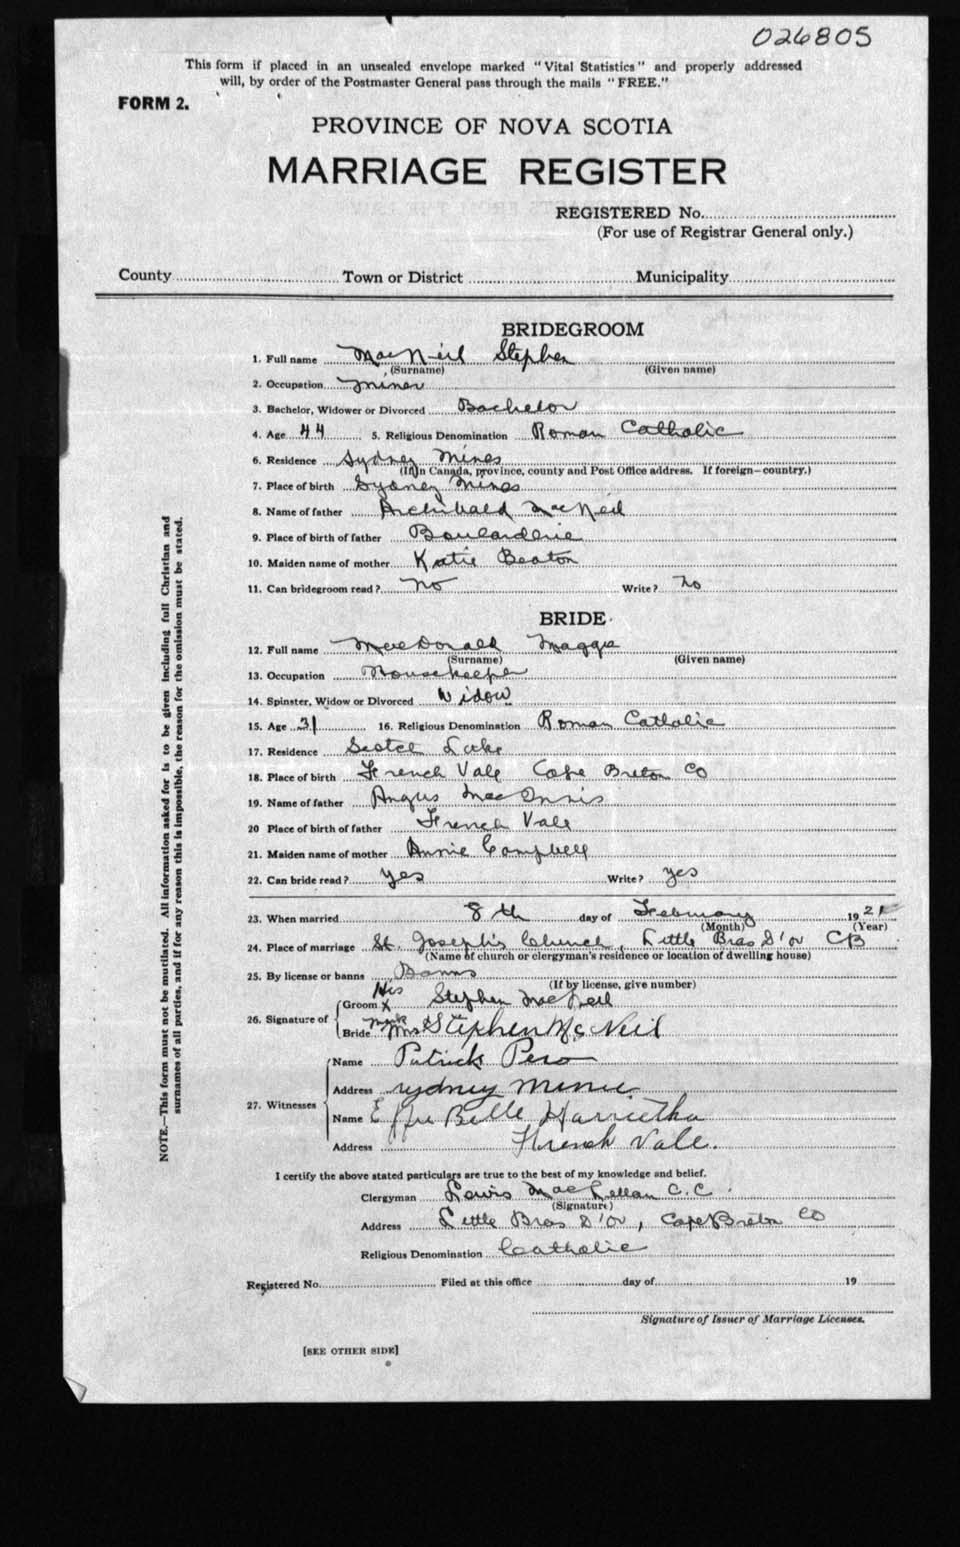 026805
This form if placed in an unsealed envelope marked "Vital Statistics" and properly addressed
will, by order of the Postmaster General pass through the mails "FREE."
FORM 2.
PROVINCE OF NOVA SCOTIA
MARRIAGE REGISTER
REGISTERED No.
(For use of Registrar General only.)
County Town or District Municipality
BRIDEGROOM
1. Full name MacNeil Stephen
(Surname) (Given name)
2. Occupation miner
3. Bachelor, Widower or Divorced Bachelor
4. Age 44 5. Religious Denomination Roman Catholic
6. Residence Sydney Mines
(If in Canada, province, county and Post Office address. If foreign—country.)
7. Place of birth Sydney Mines
8. Name of father Archibald MacNeil
9. Place of birth of father Boularderie
10. Maiden name of mother Katie Beaton
11. Can bridegroom read? No Write? No
BRIDE
12. Full name MacDonald Maggie
(Surname) (Given name)
13. Occupation Housekeeper
14. Spinster, Widow or Divorced Widow
15. Age 31 16. Religious Denomination Roman Catholic
17. Residence Scotch Lake
18. Place of birth French Vale Cape Breton Co
19. Name of father Angus MacInnis
20 Place of birth of father French Vale
21. Maiden name of mother Annie Campbell
22. Can bride read? yes Write? yes
23. When married 8th day of February 1921
(Month) (Year)
24. Place of marriage St. Joseph's Church, Little Bras D'or CB
(Name of church or clergyman's residence or location of dwelling house)
25. By license or banns Banns
(If by license, give number)
26. Signature of
Groom His X mark Stephen MacNeil
Bride Mrs Stephen McNeil
27. Witnesses
Name Patrick Pero
Address Sydney Mines
Name Effie Belle
Address French Vale.
I certify the above stated particulars are true to the best of my knowledge and belief.
Clergyman Lewis MacLellan C.C.
(Signature)
Address Little Bras D'or, Cape Breton Co
Religious Denomination Catholic
Registered No. Filed at this office day of 19
Signature of Issuer of Marriage Licenses.
[SEE OTHER SIDE]
NOTE.—This form must not be mutilated. All information asked for is to be given including full Christian and
surnames of all parties, and if for any reason this is impossible, the reason for the omission must be stated.